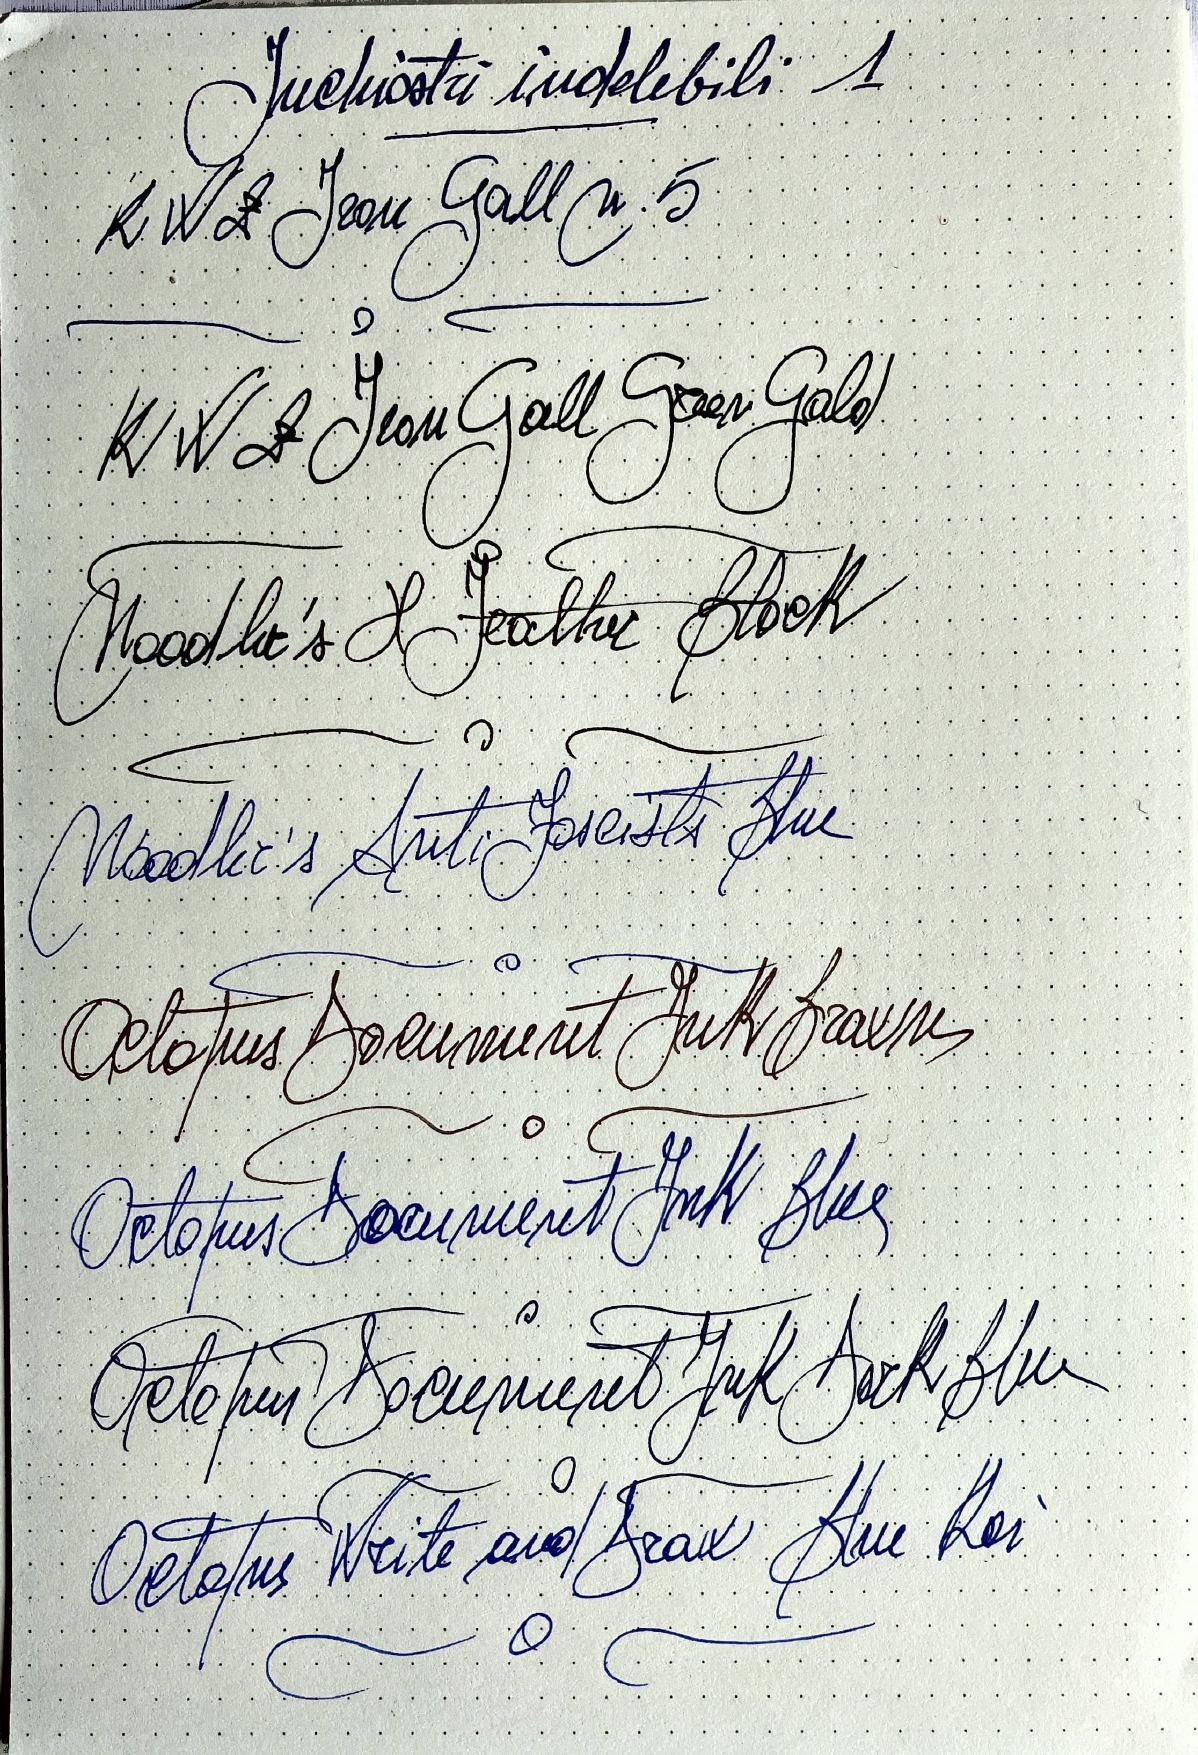 Inchiostri indelebili 1
KWZ Iron Gall n. 5
KWZ Iron Gall Green Gold
Noodler's X Feather Black
Noodler's Anti Fascists Blue
Octopus Document Ink Brown
Octopus Document Ink Blue
Octopus Document Ink Dark Blue
Octopus Write and Draw Blue Koi